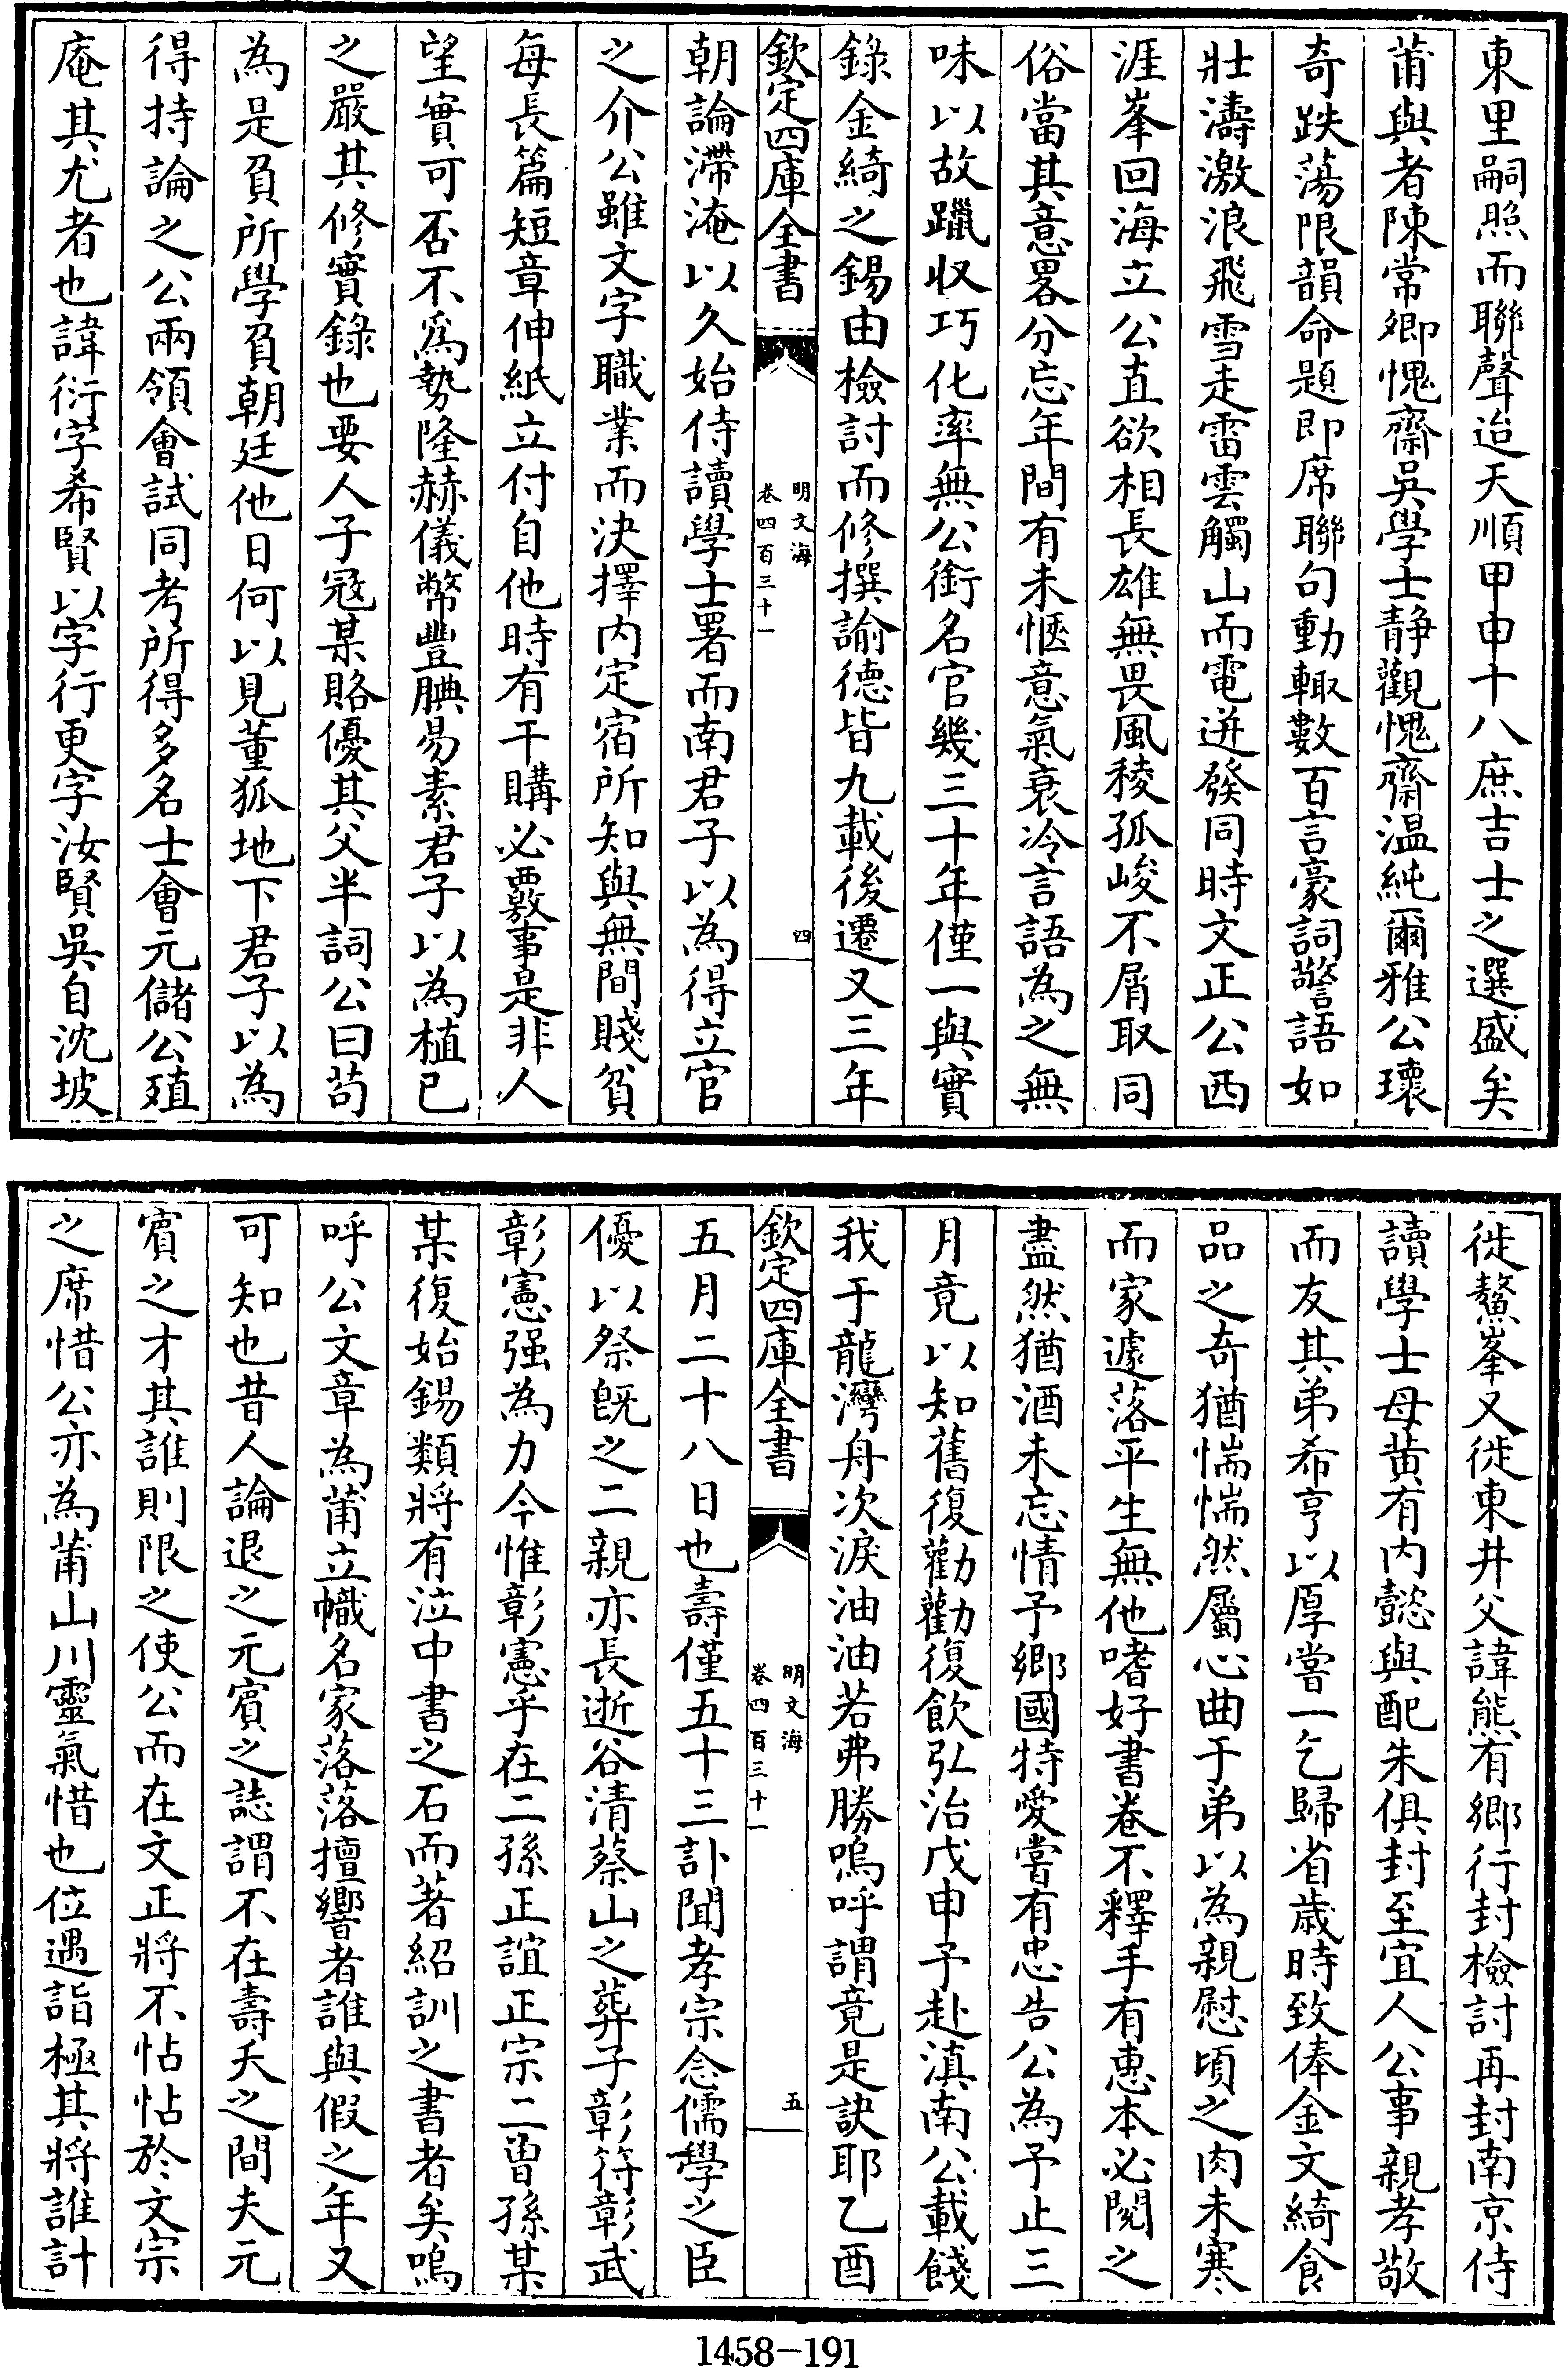 東里嗣照而聯聲迨天順甲申十八庶吉士之選盛矣
莆與者陳常卿愧齋吳學士静觀愧齋温純爾雅公瓌
奇跌蕩限韻命題即席聯句動輙數百言豪詞警語如
壯濤激浪飛雪走雷雲觸山而電迸發同時文正公西
涯峯回海立公直欲相長雄無畏風稜孤峻不屑取同
俗當其意畧分忘年間有未愜意氣衰冷言語為之無
味以故躐收巧化率無公銜名官幾三十年僅一與實
錄金綺之錫由檢討而修撰諭德皆九載後遷又三年
欽定四庫全書
明文海
卷四百三十一
四
朝論滯淹以久始侍讀學士署而南君子以為得立官
之介公雖文字職業而決擇内定宿所知與無間賤貧
每長篇短章伸紙立付自他時有干購必覈事是非人
望實可否不為勢隆赫儀幣豐腆易素君子以為植已
之嚴其修實錄也要人子冦某賂優其父半詞公曰苟
為是負所學負朝廷他日何以見董狐地下君子以為
得持論之公兩領會試同考所得多名士會元儲公殖
庵其尤者也諱衍字希賢以字行更字汝賢吳自沈坡
徙鰲峯又徙東井父諱熊有鄉行封檢討再封南京侍
讀學士母黄有内懿與配朱俱封至宜人公事親孝敬
而友其弟希亨以厚嘗一乞歸省歳時致俸金文綺食
品之奇猶惴惴然屬心曲于弟以為親慰頃之肉未寒
而家遽落平生無他嗜好書卷不釋手有惠本必閱之
盡然猶酒未忘情予鄉國特愛嘗有忠告公為予止三
月竟以知舊復勸勸復飲弘治戊申予赴滇南公載餞
我于龍灣舟次淚油油若弗勝嗚呼謂竟是訣耶乙酉
欽定四庫全書
明文海
卷四百三十一
五
五月二十八日也壽僅五十三訃聞孝宗念儒學之臣
優以祭旣之二親亦長逝谷清蔡山之葬子彰符彰武
彰憲强為力今惟彰憲乎在二孫正誼正宗二曽孫某
某復始錫類將有泣中書之石而著紹訓之書者矣嗚
呼公文章為莆立幟名家落落擅響者誰與假之年又
可知也昔人論退之元賔之誌謂不在壽夭之間夫元
賔之才其誰則限之使公而在文正將不怗怗於文宗
之席惜公亦為莆山川靈氣惜也位遇詣極其將誰計
1458-191